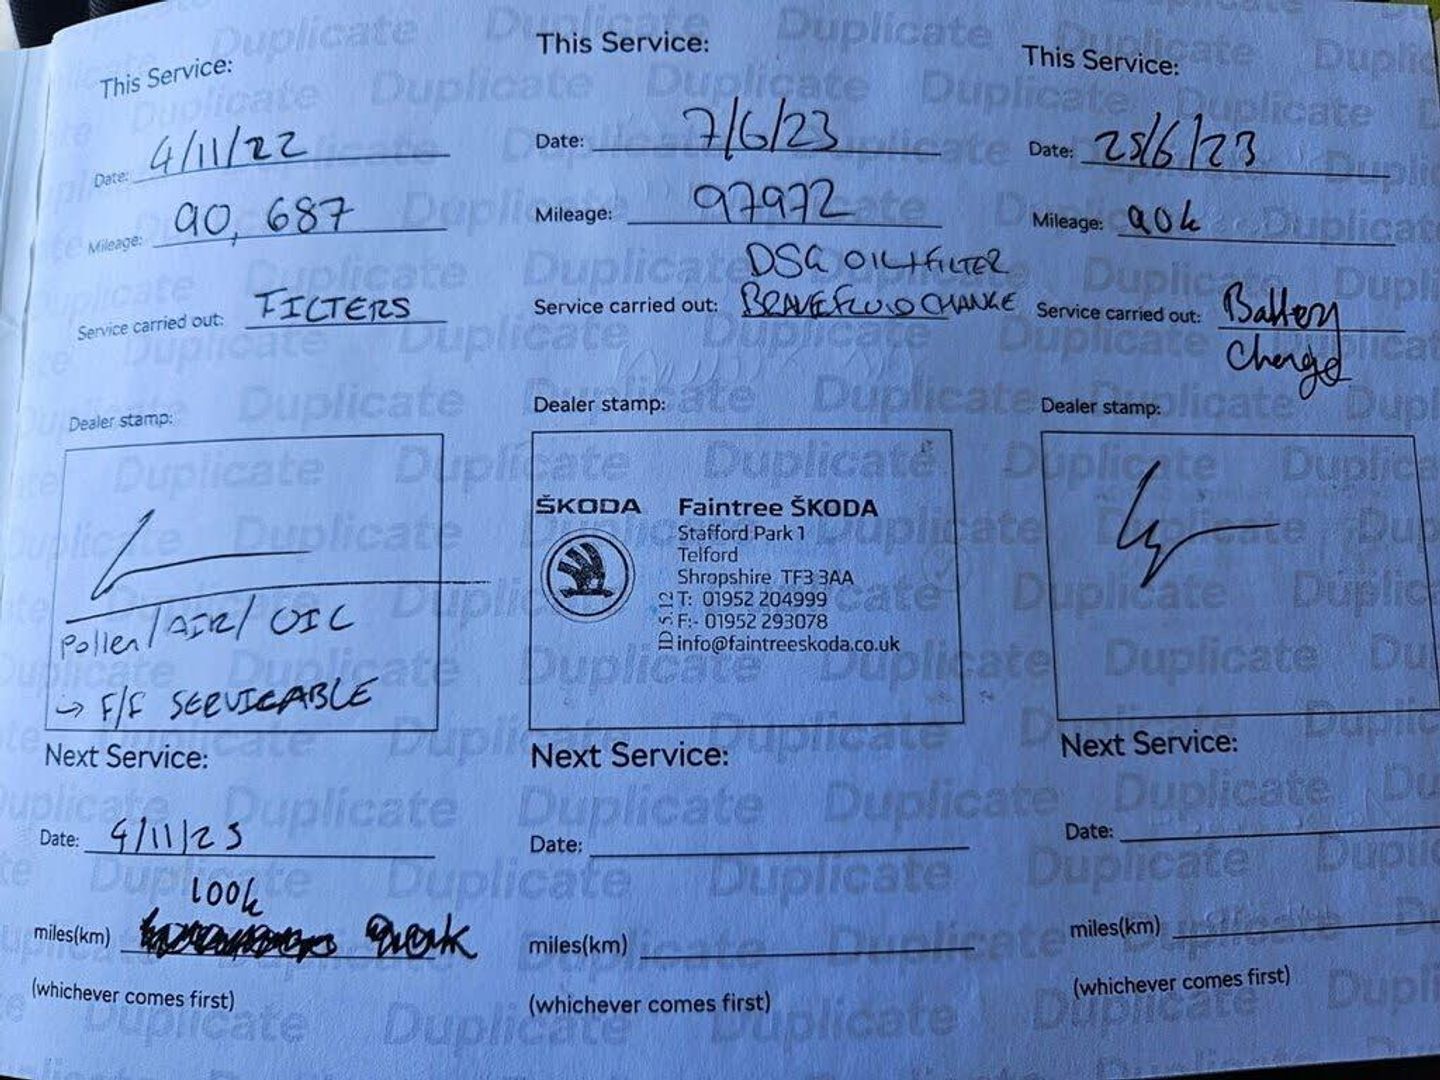 This Service:
Date: 4/11/22
Mileage: 90,687
Service carried out: FILTERS
Dealer stamp:
Pollen/AIR/OIL
→ F/F SERVICABLE
Next Service:
Date: 4/11/23
100k
miles(km)
(whichever comes first)
This Service:
Date: 7/6/23
Mileage: 97972
DSG OIL+FILTER
Service carried out: BRAKE FLUID CHANGE
Dealer stamp:
ŠKODA
Faintree ŠKODA
Stafford Park 1
Telford
Shropshire TF3 3AA
T: 01952 204999
F:- 01952 293078
info@faintreeskoda.co.uk
ID 5.12
Next Service:
Date:
miles(km)
(whichever comes first)
This Service:
Date: 25/6/23
Mileage: 90k
Service carried out: Battery
Change
Dealer stamp:
Next Service:
Date:
miles(km)
(whichever comes first)
Duplicate